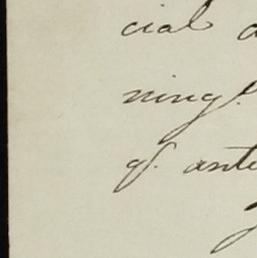 cial
ning!
of ante